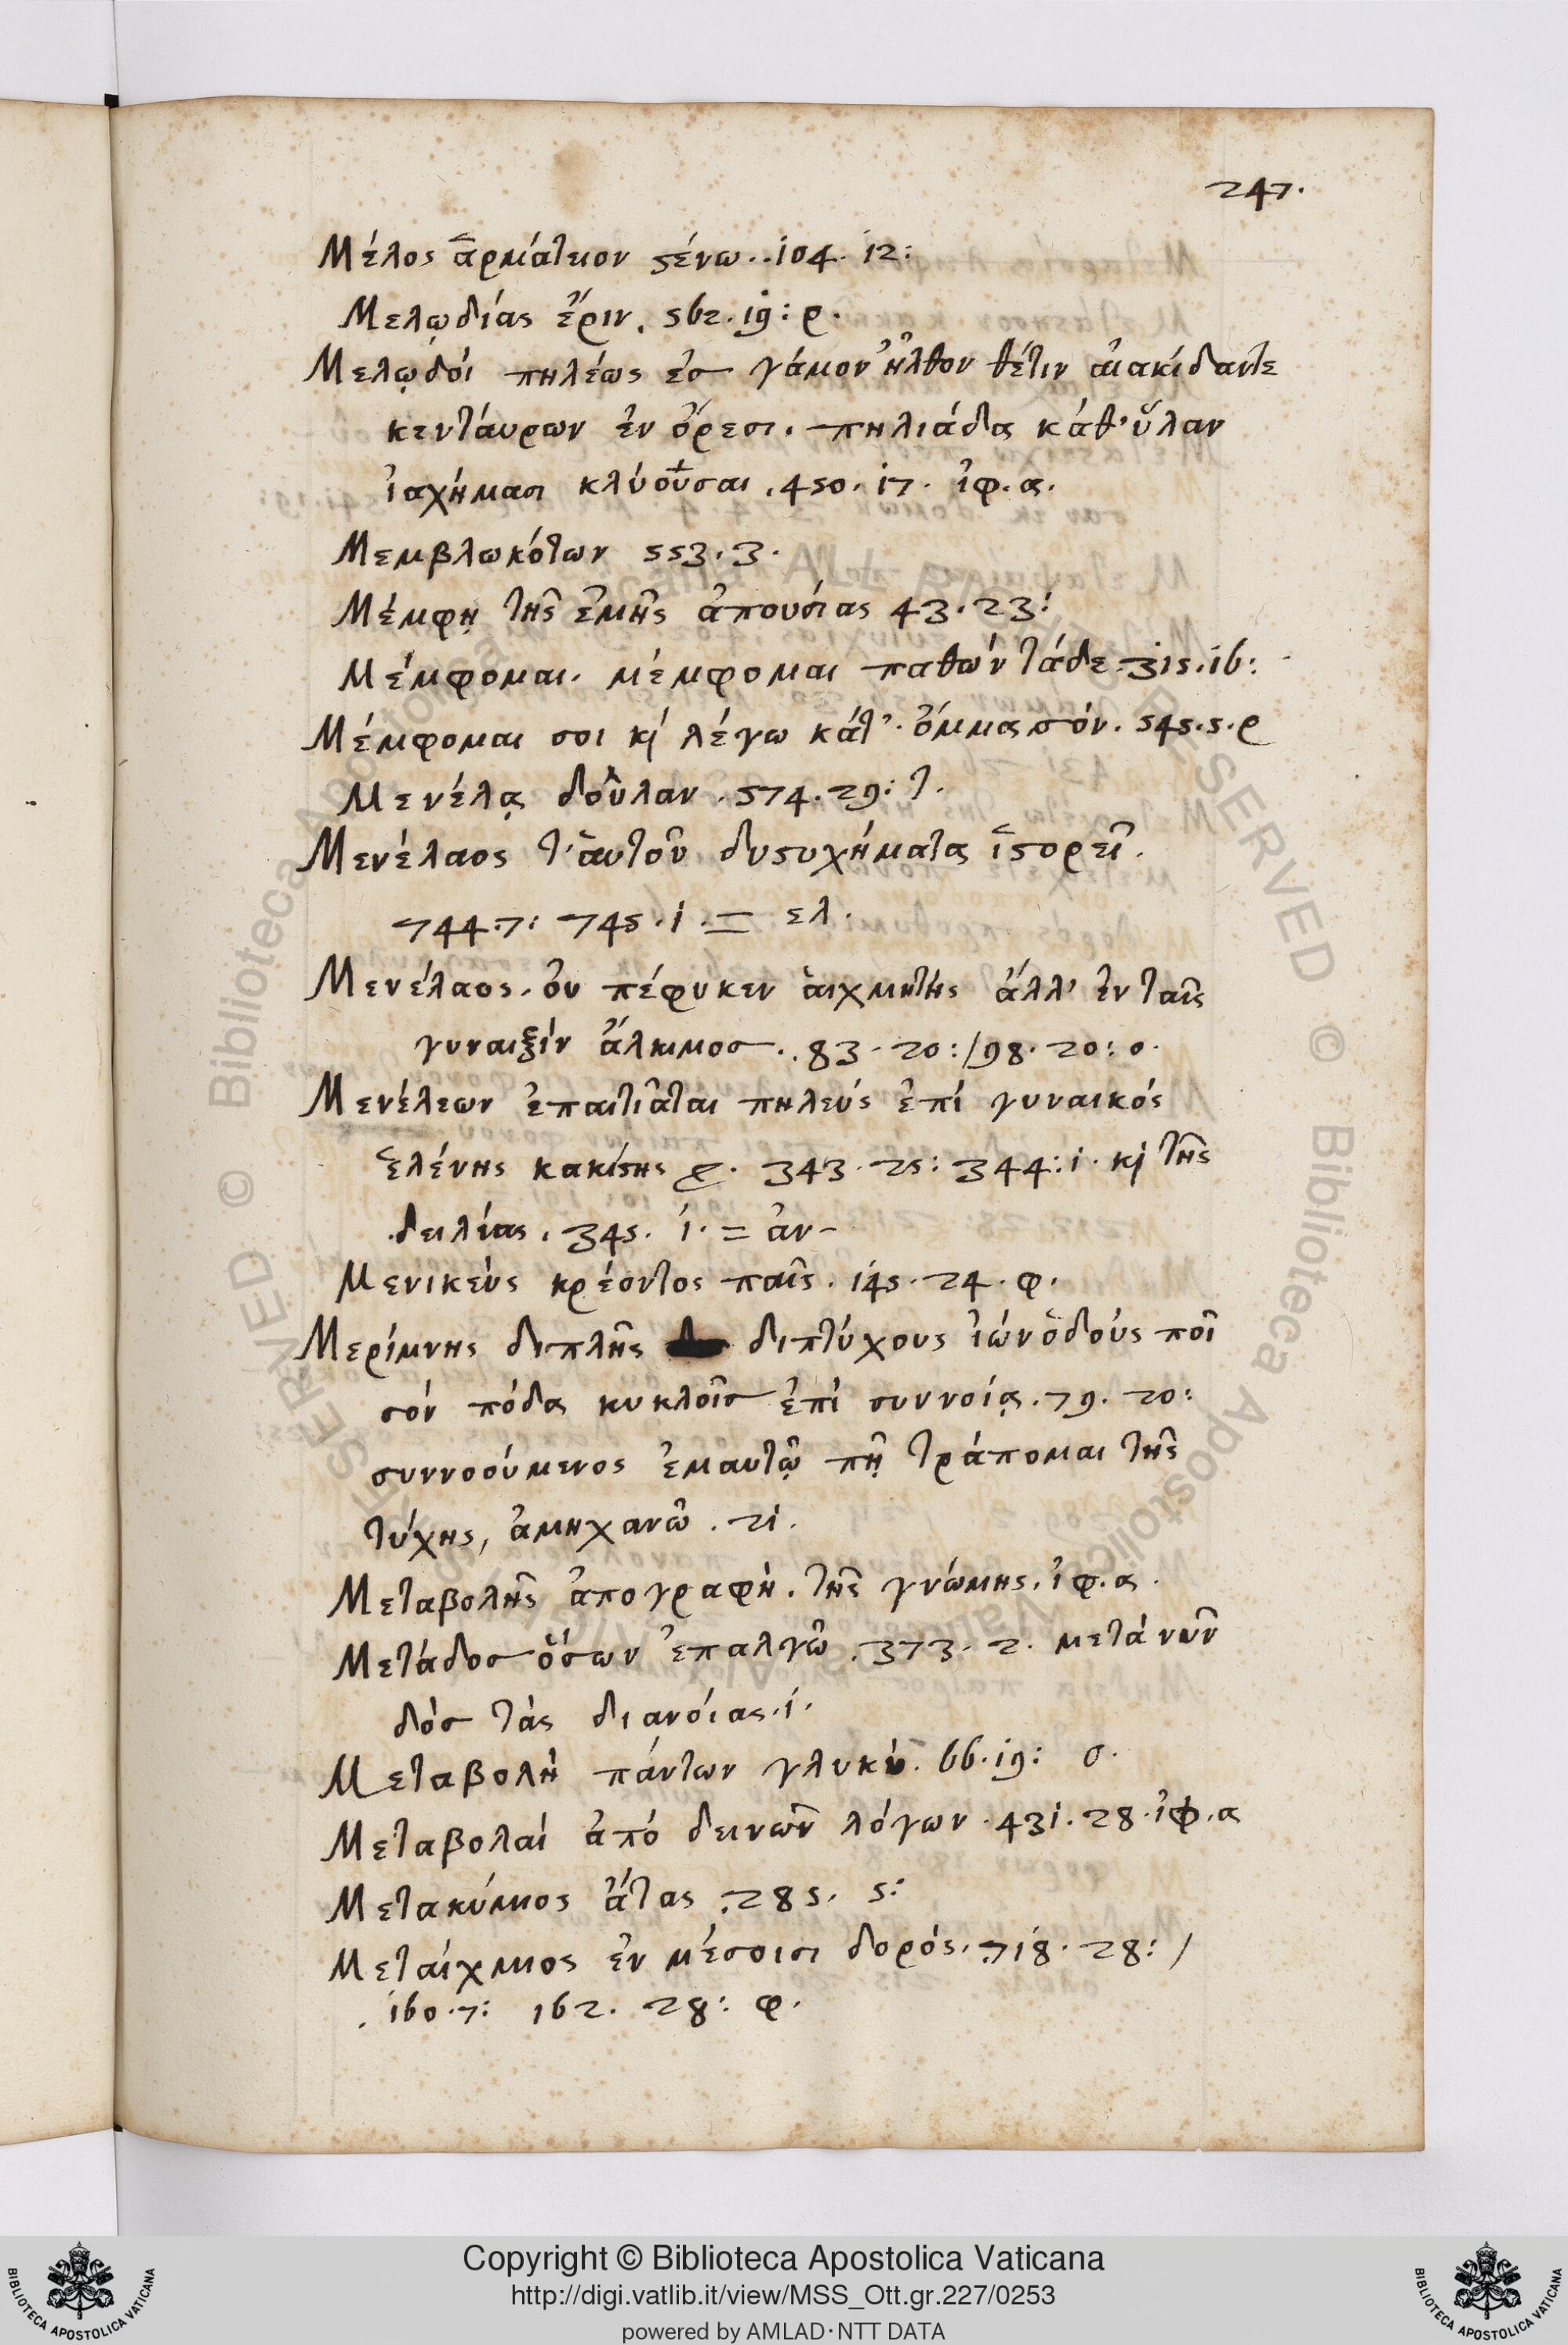 247.
Μέλος ἁρμάτειον στένω..104.12:
Μελῳδίας ἔριν. 562.19: ρ.
Μελῳδόι πηλέως ἐσ γάμον ἦλθον θέτιν ἀιακίδαντε
κεντάυρων ἐν ὄρεσι. πηλιάδα κάθ' ὕλαν
ἰαχήμασι κλύουσαι .450.17. ἰφ.α.
Μεμβλωκότων 553.3.
Μέμφῃ τῆς ἐμῆς ἀπουσίας 43.23:
Μέμφομαι. μέμφομαι παθών τάδε.315.16:
Μέμφομαι σοι κὶ λέγω κάτ'. ὄμμα σόν. 545.5.ρ
Μενέλᾳ δοῦλαν .574.29: τ.
Μενέλαος τ' ἁυτοῦ δυστυχήματα ἱστορεῖ.
744.7: 745.1.= ελ.
Μενέλαος. ὀυ πέφυκεν ἀιχμητὴς ἄλλ' ἐν ταῖς
γυναιξὶν ἄλκιμοσ..83.20:/98.20:ο.
Μενέλεων ἐπαιτιᾶται πηλεύς ἐπί γυναικός
ἑλένης κακίστης 343.25: 344:1. κὶ τῆς
δειλίας. 345. 1.= ἀν-
Μενικεὺς κρέοντος παῖς. 145.24.φ.
Μερίμνης διπλῆς διπτύχους ἰών ὁδούς ποῖ
σόν πόδα κυκλοῖσ ἐπὶ συννοίᾳ.79. 20:
συννοούμενος ἐμαυτῷ πῇ τράπομαι τῆς
τύχης, ἀμηχανῶ . 21.
Μεταβολῆς ἀπογραφὴ. τῆς γνώμης. ἰφ.α.
Μετάδοσ ὅσων ἐπαλγῶ .373. 2. μετά νῦν
δόσ τάς διανόιας.1.
Μεταβολὴ πάντων γλυκύ. 66.19: ο.
Μεταβολαί ἀπό δεινῶν λόγων.431.28.ἰφ.α
Μετακύμιος ἄτας .285. 5:
Μεταίχμιος ἐν μέσοισι δορός. 718. 28: /
.160.7: 162. 28: φ.
Copyright © Biblioteca Apostolica Vaticana
http://digi.vatlib.it/view/MSS_Ott.gr.227/0253
powered by AMLAD·NTT DATA